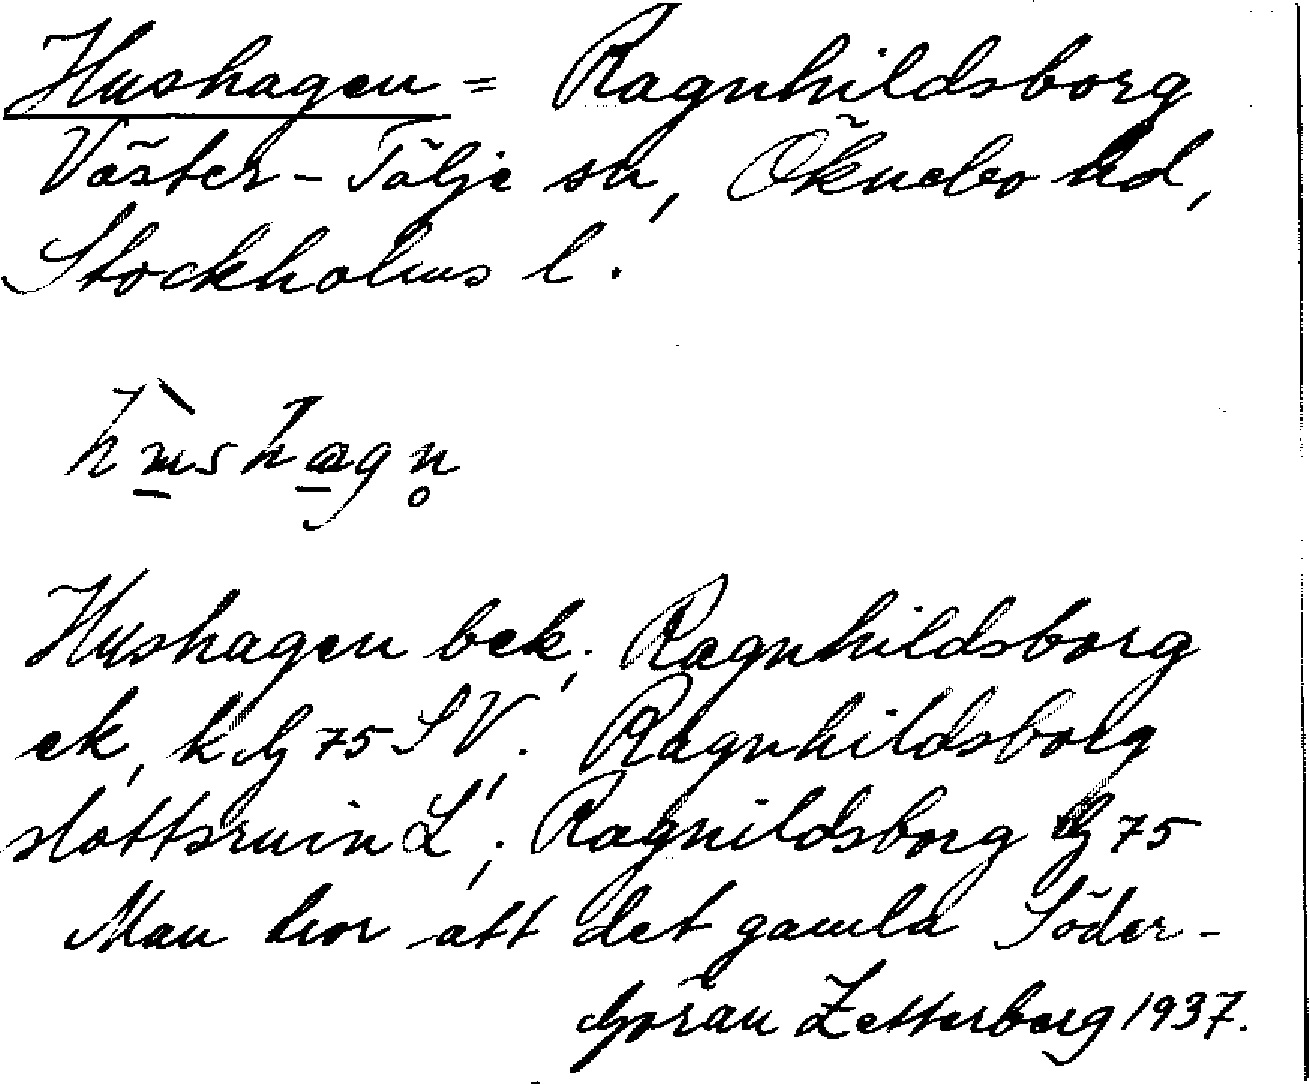 Hushagen = Ragnhildsborg
Väster-Tälje sn, Öknebo hd,
Stockholms l.
hùshagn̥
Hushagen bek; Ragnhildsborg
ek, k Gj 75 SV; Ragnhildsborg
slottsruin L'; Ragnildsborg Gj 75
Man tror att det gamla Söder-
Göran Zetterberg 1937.